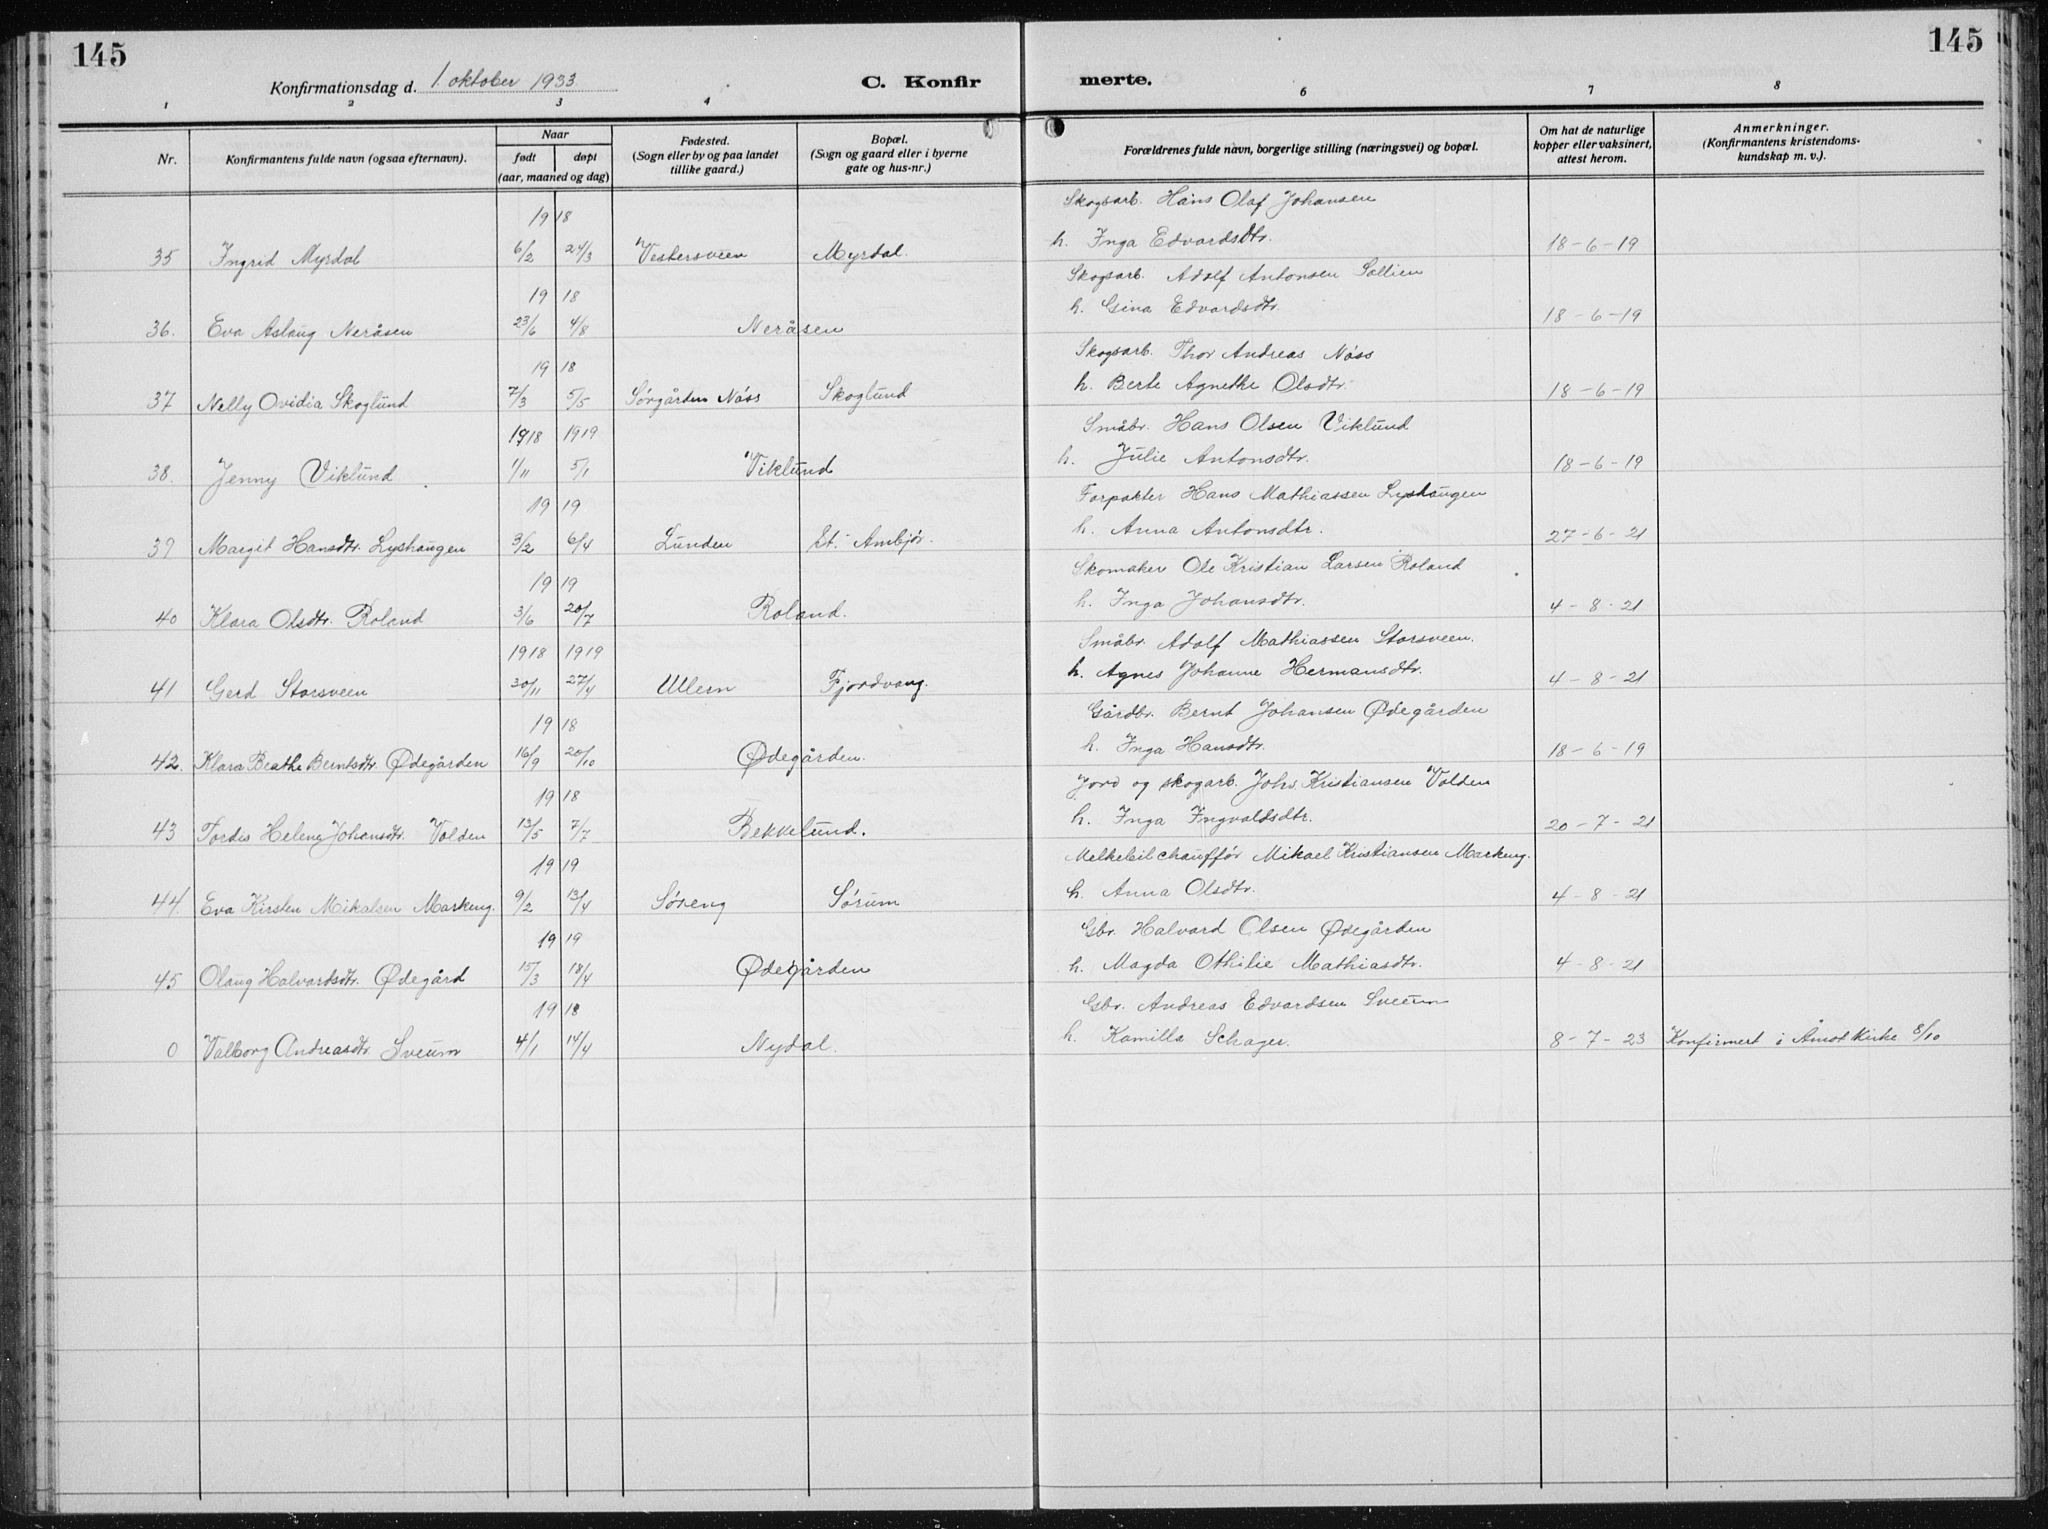 145
Konfirmationsdag d. 1. oktober 1933
C. Konfir
merte.
145
1 2 3 4 6 7 8
Nr.
Konfirmantens fulde navn (ogsaa efternavn).
Naar
født døpt
(aar, maaned og dag)
Fødested.
(Sogn eller by og paa landet
tillike gaard.)
Bopæl.
(Sogn og gaard eller i byerne
gate og hus-nr.)
Forældrenes fulde navn, borgerlige stilling (næringsvei) og bopæl.
Om hat de naturlige
kopper eller vaksinert,
attest herom.
Anmerkninger.
(Konfirmantens kristendoms-
kundskap m. v.).
19 18 Skogsarb. Hans Olaf Johansen
35 Ingrid Myrdal 6/2 24/3 Vestersveen Myrdal. h. Inga Edvardsdtr. 18-6-19
19 18 Skogsarb. Adolf Antonsen Sollien
36. Eva Aslaug Neråsen 23/6 4/8 Neråsen h. Gina Edvardsdtr. 18-6-19
19 18 Skogsarb. Thor Andreas Näss
37 Nelly Ovidia Skoglund 7/3 5/5 Sørgården Näss Skoglund h. Berte Agnethe Olsdtr. 18-6-19
1918 1919 Småbr. Hans Olsen Viklund
38. Jenny Viklund 1/11 5/1 Viklund h. Julie Antonsdtr. 18-6-19
19 19 Forpakter Hans Mathiassen Lyshaugen
39 Margit Hansdtr. Lyshaugen 3/2 6/4 Lunden St. Ambjør. h. Anna Antonsdtr. 27-6-21
19 19 Skomaker Ole Kristian Larsen Roland
40 Klara Olsdtr. Roland 3/6 20/7 Roland. h. Inga Johansdtr. 4-8-21
1918 1919 Småbr. Adolf Mathiassen Storsveen.
41 Gerd Storsveen 30/11 27/4 Ullern Fjordvang. h. Agnes Johanne Hermansdtr. 4-8-21
19 18 Gårdbr. Bernt Johansen Ødegården
42. Klara Beathe Berntsdtr. Ødegården 16/9 20/10 Ødegården. h. Inga Hansdtr. 18-6-19
19 18 Jord og skogarb. Johs. Kristiansen Volden
43 Tordis Helene Johansdtr. Volden 13/5 7/7 Bekkelund. h. Inga Ingvaldsdtr. 20-7-21
19 19 Melkebilchauffør Mikael Kristiansen Markeng.
44. Eva Kirsten Mikalsen Markeng. 9/2 13/4 Søreng Sørum h. Anna Olsdtr. 4-8-21
19 19 Gbr. Halvard Olsen Ødegården
45 Olaug Halvardsdtr. Ødegård 15/3 18/4 Ødegården h. Magda Othilie Mathiasdtr. 4-8-21
19 18 Gbr. Andreas Edvardsen Sveum
0 Valborg Andreasdtr. Sveum 4/1 14/4 Nydal. h. Kamilla Schager. 8-7-23 Konfirmert i Åmot Kirke 8/10